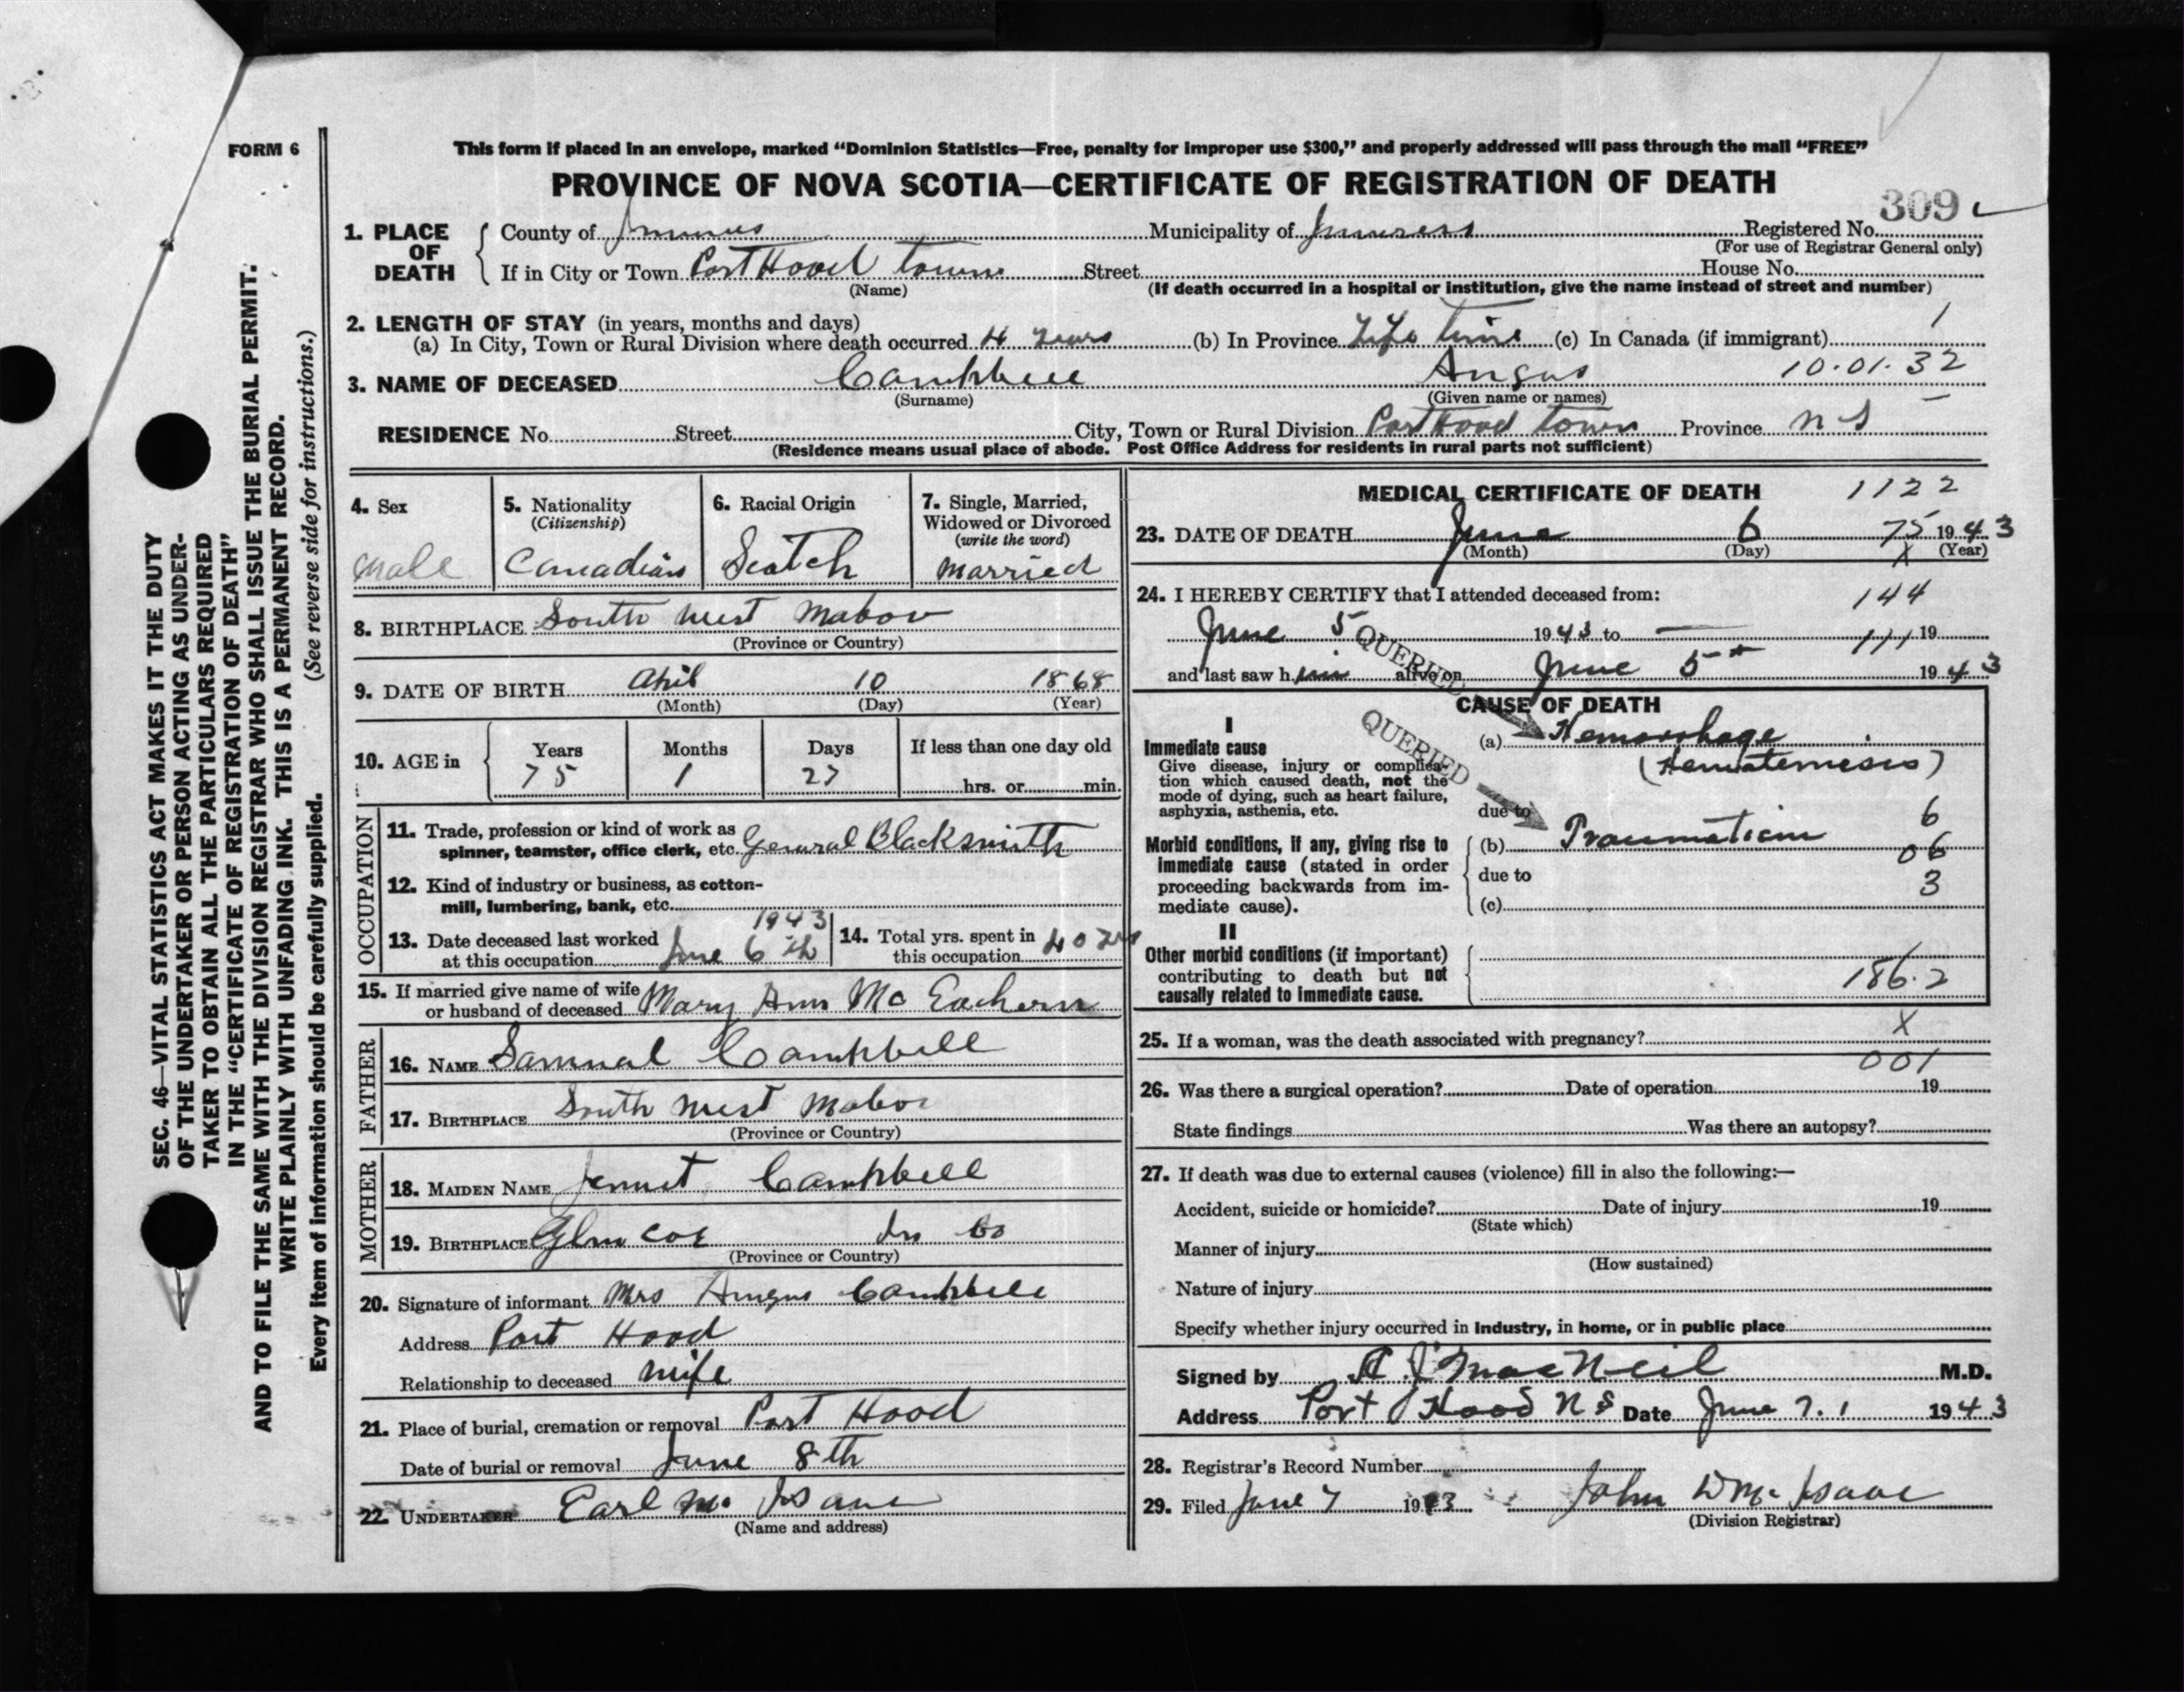 FORM 6
This form if placed in an envelope, marked "Dominion Statistics—Free, penalty for improper use $300," and properly addressed will pass through the mail "FREE"
PROVINCE OF NOVA SCOTIA—CERTIFICATE OF REGISTRATION OF DEATH
309
1. PLACE OF DEATH
County of Inverness Municipality of Inverness Registered No.
(For use of Registrar General only)
If in City or Town Port Hood town Street House No.
(Name) (If death occurred in a hospital or institution, give the name instead of street and number)
2. LENGTH OF STAY (in years, months and days)
(a) In City, Town or Rural Division where death occurred 4 years (b) In Province Life time (c) In Canada (if immigrant) 1
3. NAME OF DECEASED Campbell Angus 10·01·32
(Surname) (Given name or names)
RESIDENCE No. Street City, Town or Rural Division Port Hood town Province N S
(Residence means usual place of abode. Post Office Address for residents in rural parts not sufficient)
4. Sex
male
5. Nationality
(Citizenship)
Canadian
6. Racial Origin
Scotch
7. Single, Married,
Widowed or Divorced
(write the word)
married
8. BIRTHPLACE South West Mabou
(Province or Country)
9. DATE OF BIRTH April 10 1868
(Month) (Day) (Year)
10. AGE in
Years Months Days If less than one day old
75 1 27 hrs. or min.
OCCUPATION
11. Trade, profession or kind of work as
spinner, teamster, office clerk, etc. General Blacksmith
12. Kind of industry or business, as cotton-
mill, lumbering, bank, etc.
13. Date deceased last worked 1943
at this occupation June 6th
14. Total yrs. spent in
this occupation 40 yr
15. If married give name of wife
or husband of deceased Mary Ann Mc Eachern
FATHER
16. NAME Samual Campbell
17. BIRTHPLACE South West Mabou
(Province or Country)
MOTHER
18. MAIDEN NAME Jennet Campbell
19. BIRTHPLACE Glen coe In Co
(Province or Country)
20. Signature of informant Mrs Angus Campbell
Address Port Hood
Relationship to deceased wife
21. Place of burial, cremation or removal Port Hood
Date of burial or removal June 8th
22. UNDERTAKER Earl Mc Isaac
(Name and address)
MEDICAL CERTIFICATE OF DEATH 1122
23. DATE OF DEATH June 6 75 1943
(Month) (Day) X (Year)
24. I HEREBY CERTIFY that I attended deceased from: 144
June 5 1943 to — 111 19
and last saw him alive on June 5th 1943
QUERIED
QUERIED
CAUSE OF DEATH
I
Immediate cause
Give disease, injury or complica-
tion which caused death, not the
mode of dying, such as heart failure,
asphyxia, asthenia, etc.
(a) Hemorrhage
(Hematemesis)
due to 6
Morbid conditions, if any, giving rise to
immediate cause (stated in order
proceeding backwards from im-
mediate cause).
(b) Traumatism 06
due to 3
(c)
II
Other morbid conditions (if important)
contributing to death but not
causally related to immediate cause.
186.2
25. If a woman, was the death associated with pregnancy? X
001
26. Was there a surgical operation? Date of operation 19
State findings Was there an autopsy?
27. If death was due to external causes (violence) fill in also the following:—
Accident, suicide or homicide? Date of injury 19
(State which)
Manner of injury
(How sustained)
Nature of injury
Specify whether injury occurred in industry, in home, or in public place
Signed by A J MacNeil M.D.
Address Port Hood N S Date June 7. 1943
28. Registrar's Record Number
29. Filed June 7 1943 John D Mc Isaac
(Division Registrar)
SEC. 46—VITAL STATISTICS ACT MAKES IT THE DUTY
OF THE UNDERTAKER OR PERSON ACTING AS UNDER-
TAKER TO OBTAIN ALL THE PARTICULARS REQUIRED
IN THE "CERTIFICATE OF REGISTRATION OF DEATH"
AND TO FILE THE SAME WITH THE DIVISION REGISTRAR WHO SHALL ISSUE THE BURIAL PERMIT.
WRITE PLAINLY WITH UNFADING INK. THIS IS A PERMANENT RECORD.
Every item of information should be carefully supplied. (See reverse side for instructions.)